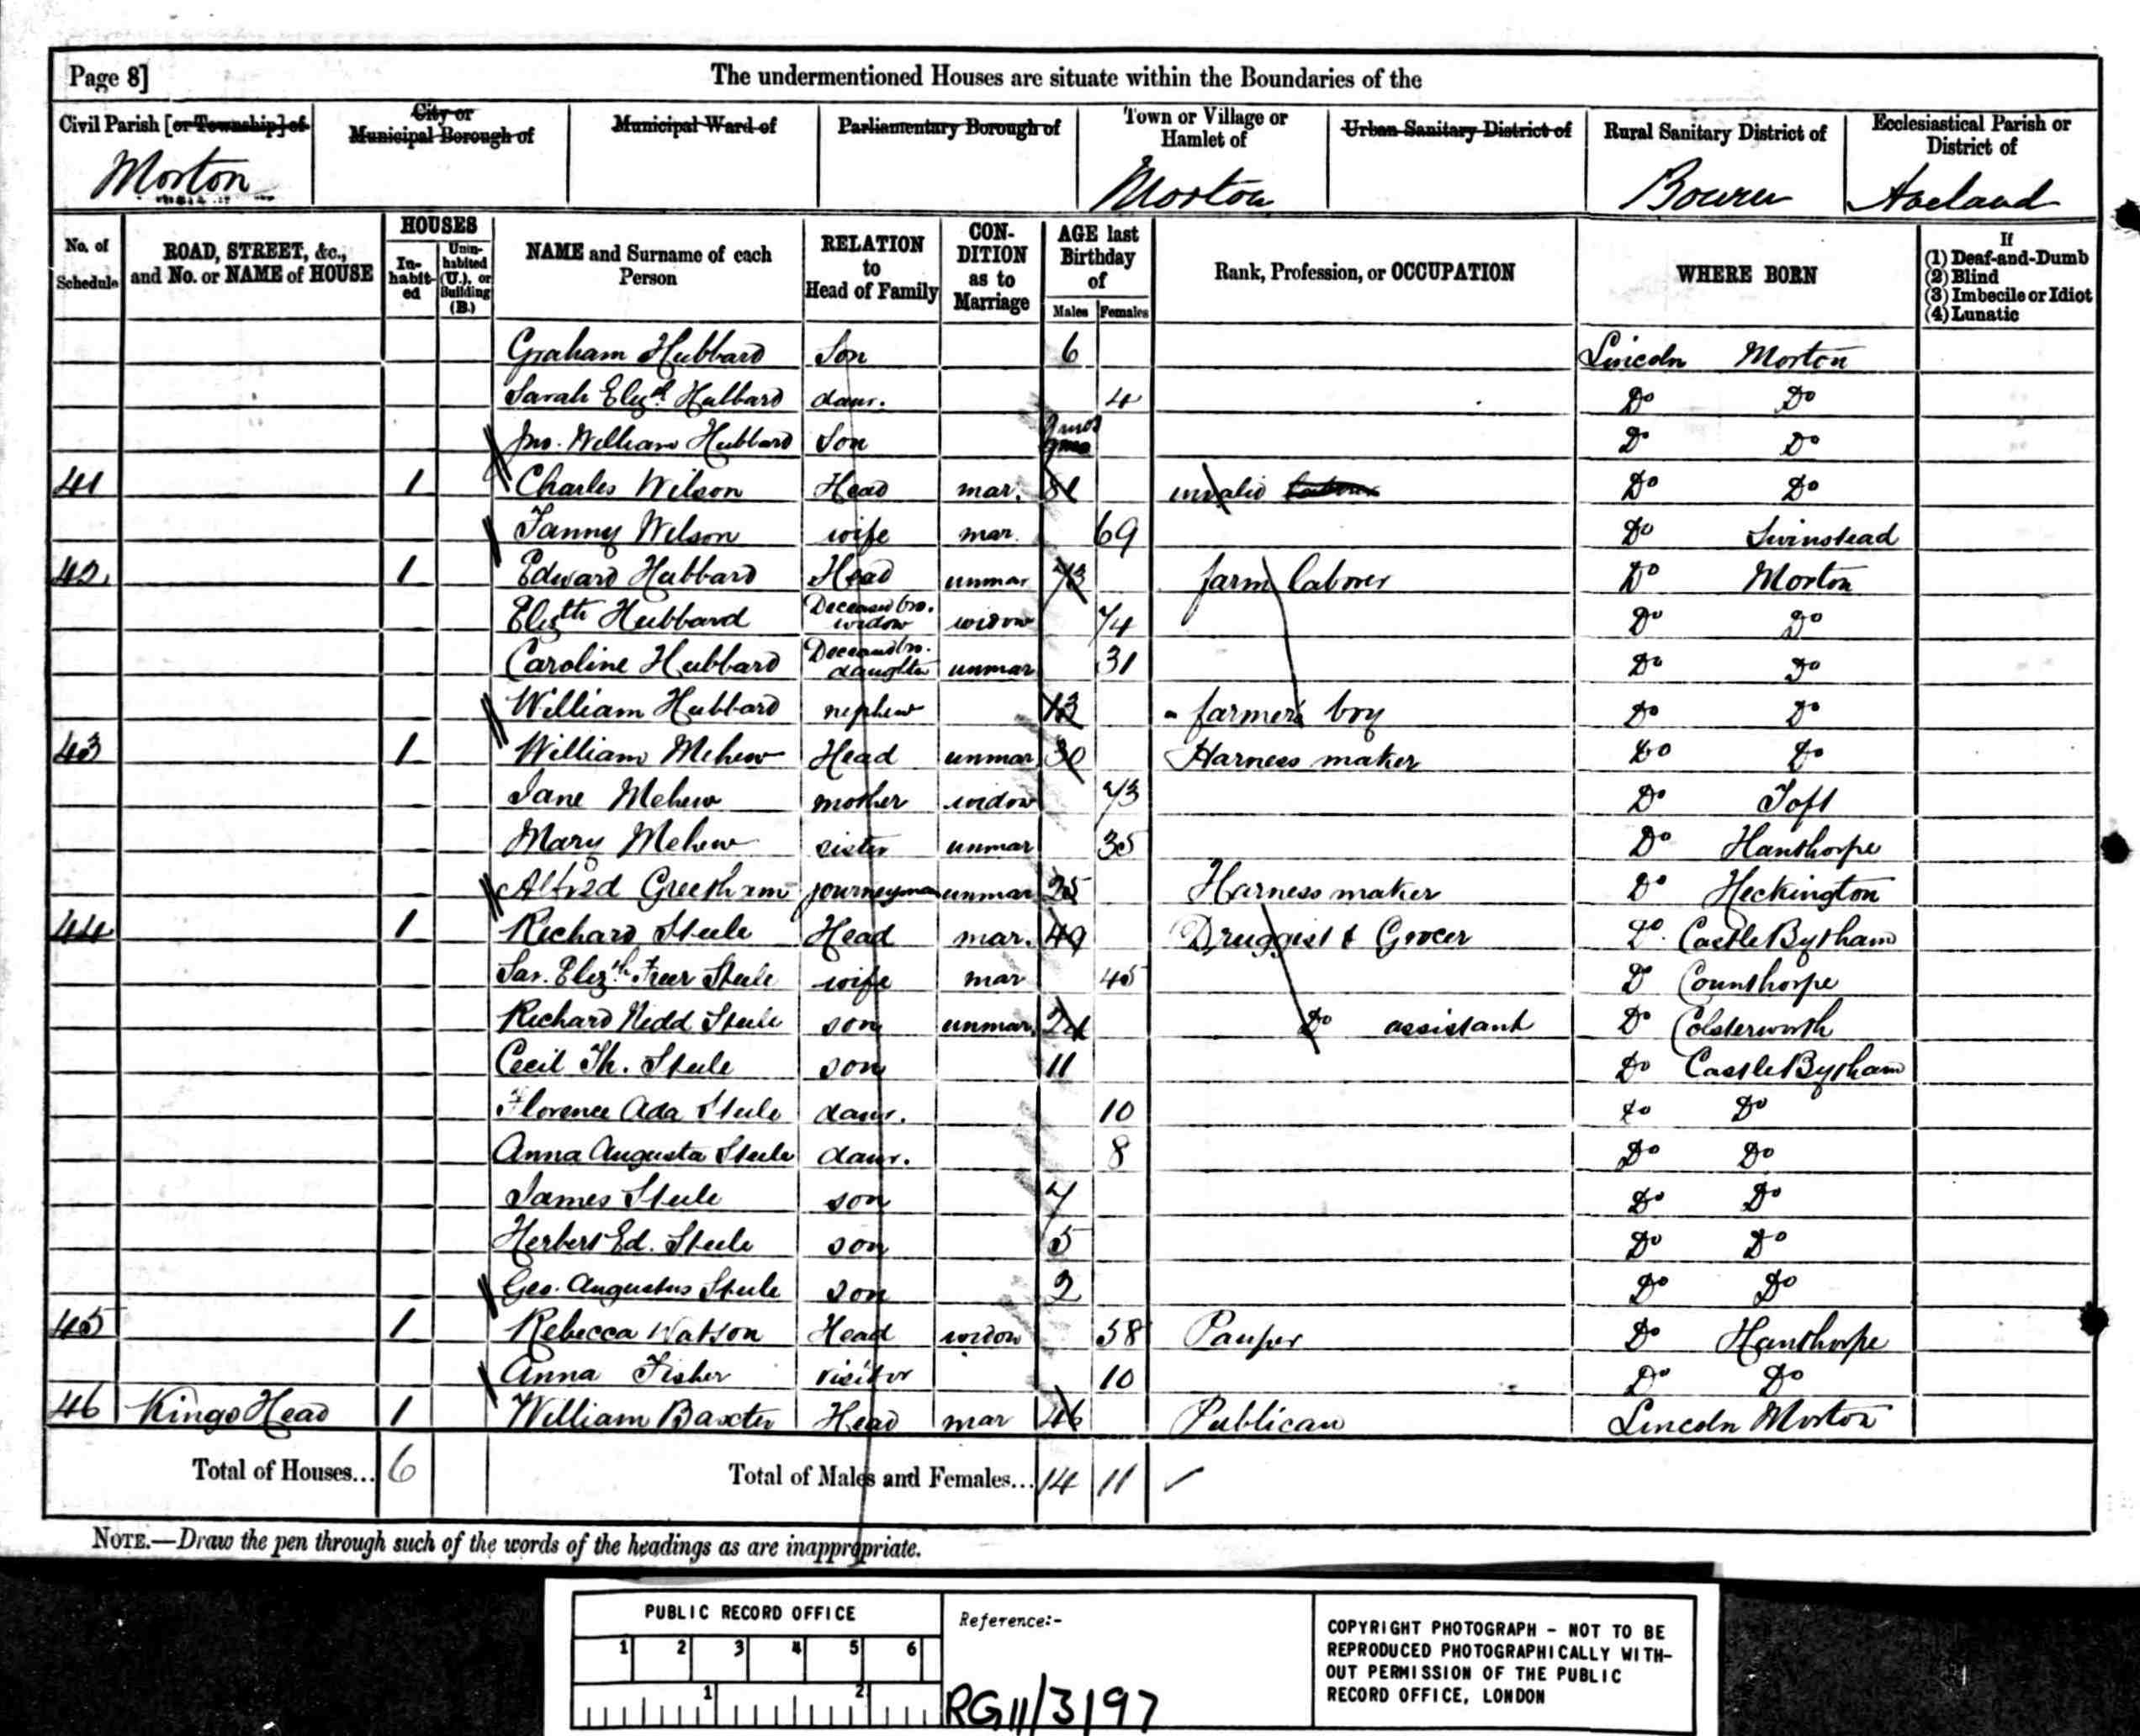 Page 8]
The undermentioned Houses are situate within the Boundaries of the
Civil Parish [or Township] of
City or Municipal Borough of
Municipal Ward of
Parliamentary Borough of
Town or Village or Hamlet of
Urban Sanitary District of
Rural Sanitary District of
Ecclesiastical Parish or District of
Morton Morton Bourn Aveland
No. of Schedule
ROAD, STREET, &c., and No. or NAME of HOUSE
HOUSES
In-habit-ed
Unin-habited (U.), or Building (B.)
NAME and Surname of each Person
RELATION to Head of Family
CON-DITION as to Marriage
AGE last Birthday of
Males Females
Rank, Profession, or OCCUPATION
WHERE BORN
If
(1) Deaf-and-Dumb
(2) Blind
(3) Imbecile or Idiot
(4) Lunatic
Graham Hubbard Son 6 Lincoln Morton
Sarah Elizth. Hubbard daur. 4 Do Do
Jno. William Hubbard Son 9 mos Do Do
41 1 Charles Wilson Head mar. 81 invalid Do Do
Fanny Wilson wife mar. 69 Do Swinstead
42 1 Edward Hubbard Head unmar 73 farm laborer Do Morton
Elizth Hubbard Deceased bro. widow widow 74 Do Do
Caroline Hubbard Deceased bro. daughter unmar 31 Do Do
William Hubbard nephew 13 farmer's boy Do Do
43 1 William Mehew Head unmar 30 Harness maker Do Do
Jane Mehew mother widow 73 Do Toft
Mary Mehew sister unmar 35 Do Hanthorpe
Alfred Greetham journeyman unmar 25 Harness maker Do Heckington
44 1 Richard Steele Head mar. 49 Druggist & Grocer Do. Castle Bytham
Sar. Elizth. Freer Steele wife mar 45 Do Counthorpe
Richard Nidd Steele son unmar. 24 Do assistant Do Colsterworth
Cecil Th. Steele son 11 Do Castle Bytham
Florence Ada Steele daur. 10 Do Do
Anna Augusta Steele daur. 8 Do Do
James Steele son 7 Do Do
Herbert Ed. Steele son 5 Do Do
Geo. Augustus Steele son 2 Do Do
45 1 Rebecca Watson Head widow 58 Pauper Do Hanthorpe
Anna Fisher visitor 10 Do Do
46 Kings Head 1 William Baxter Head mar 46 Publican Lincoln Morton
Total of Houses... 6 Total of Males and Females... 14 11
NOTE.—Draw the pen through such of the words of the headings as are inappropriate.
PUBLIC RECORD OFFICE
1 2 3 4 5 6
1 2
Reference:-
RG11/3197
COPYRIGHT PHOTOGRAPH - NOT TO BE
REPRODUCED PHOTOGRAPHICALLY WITH-
OUT PERMISSION OF THE PUBLIC
RECORD OFFICE, LONDON